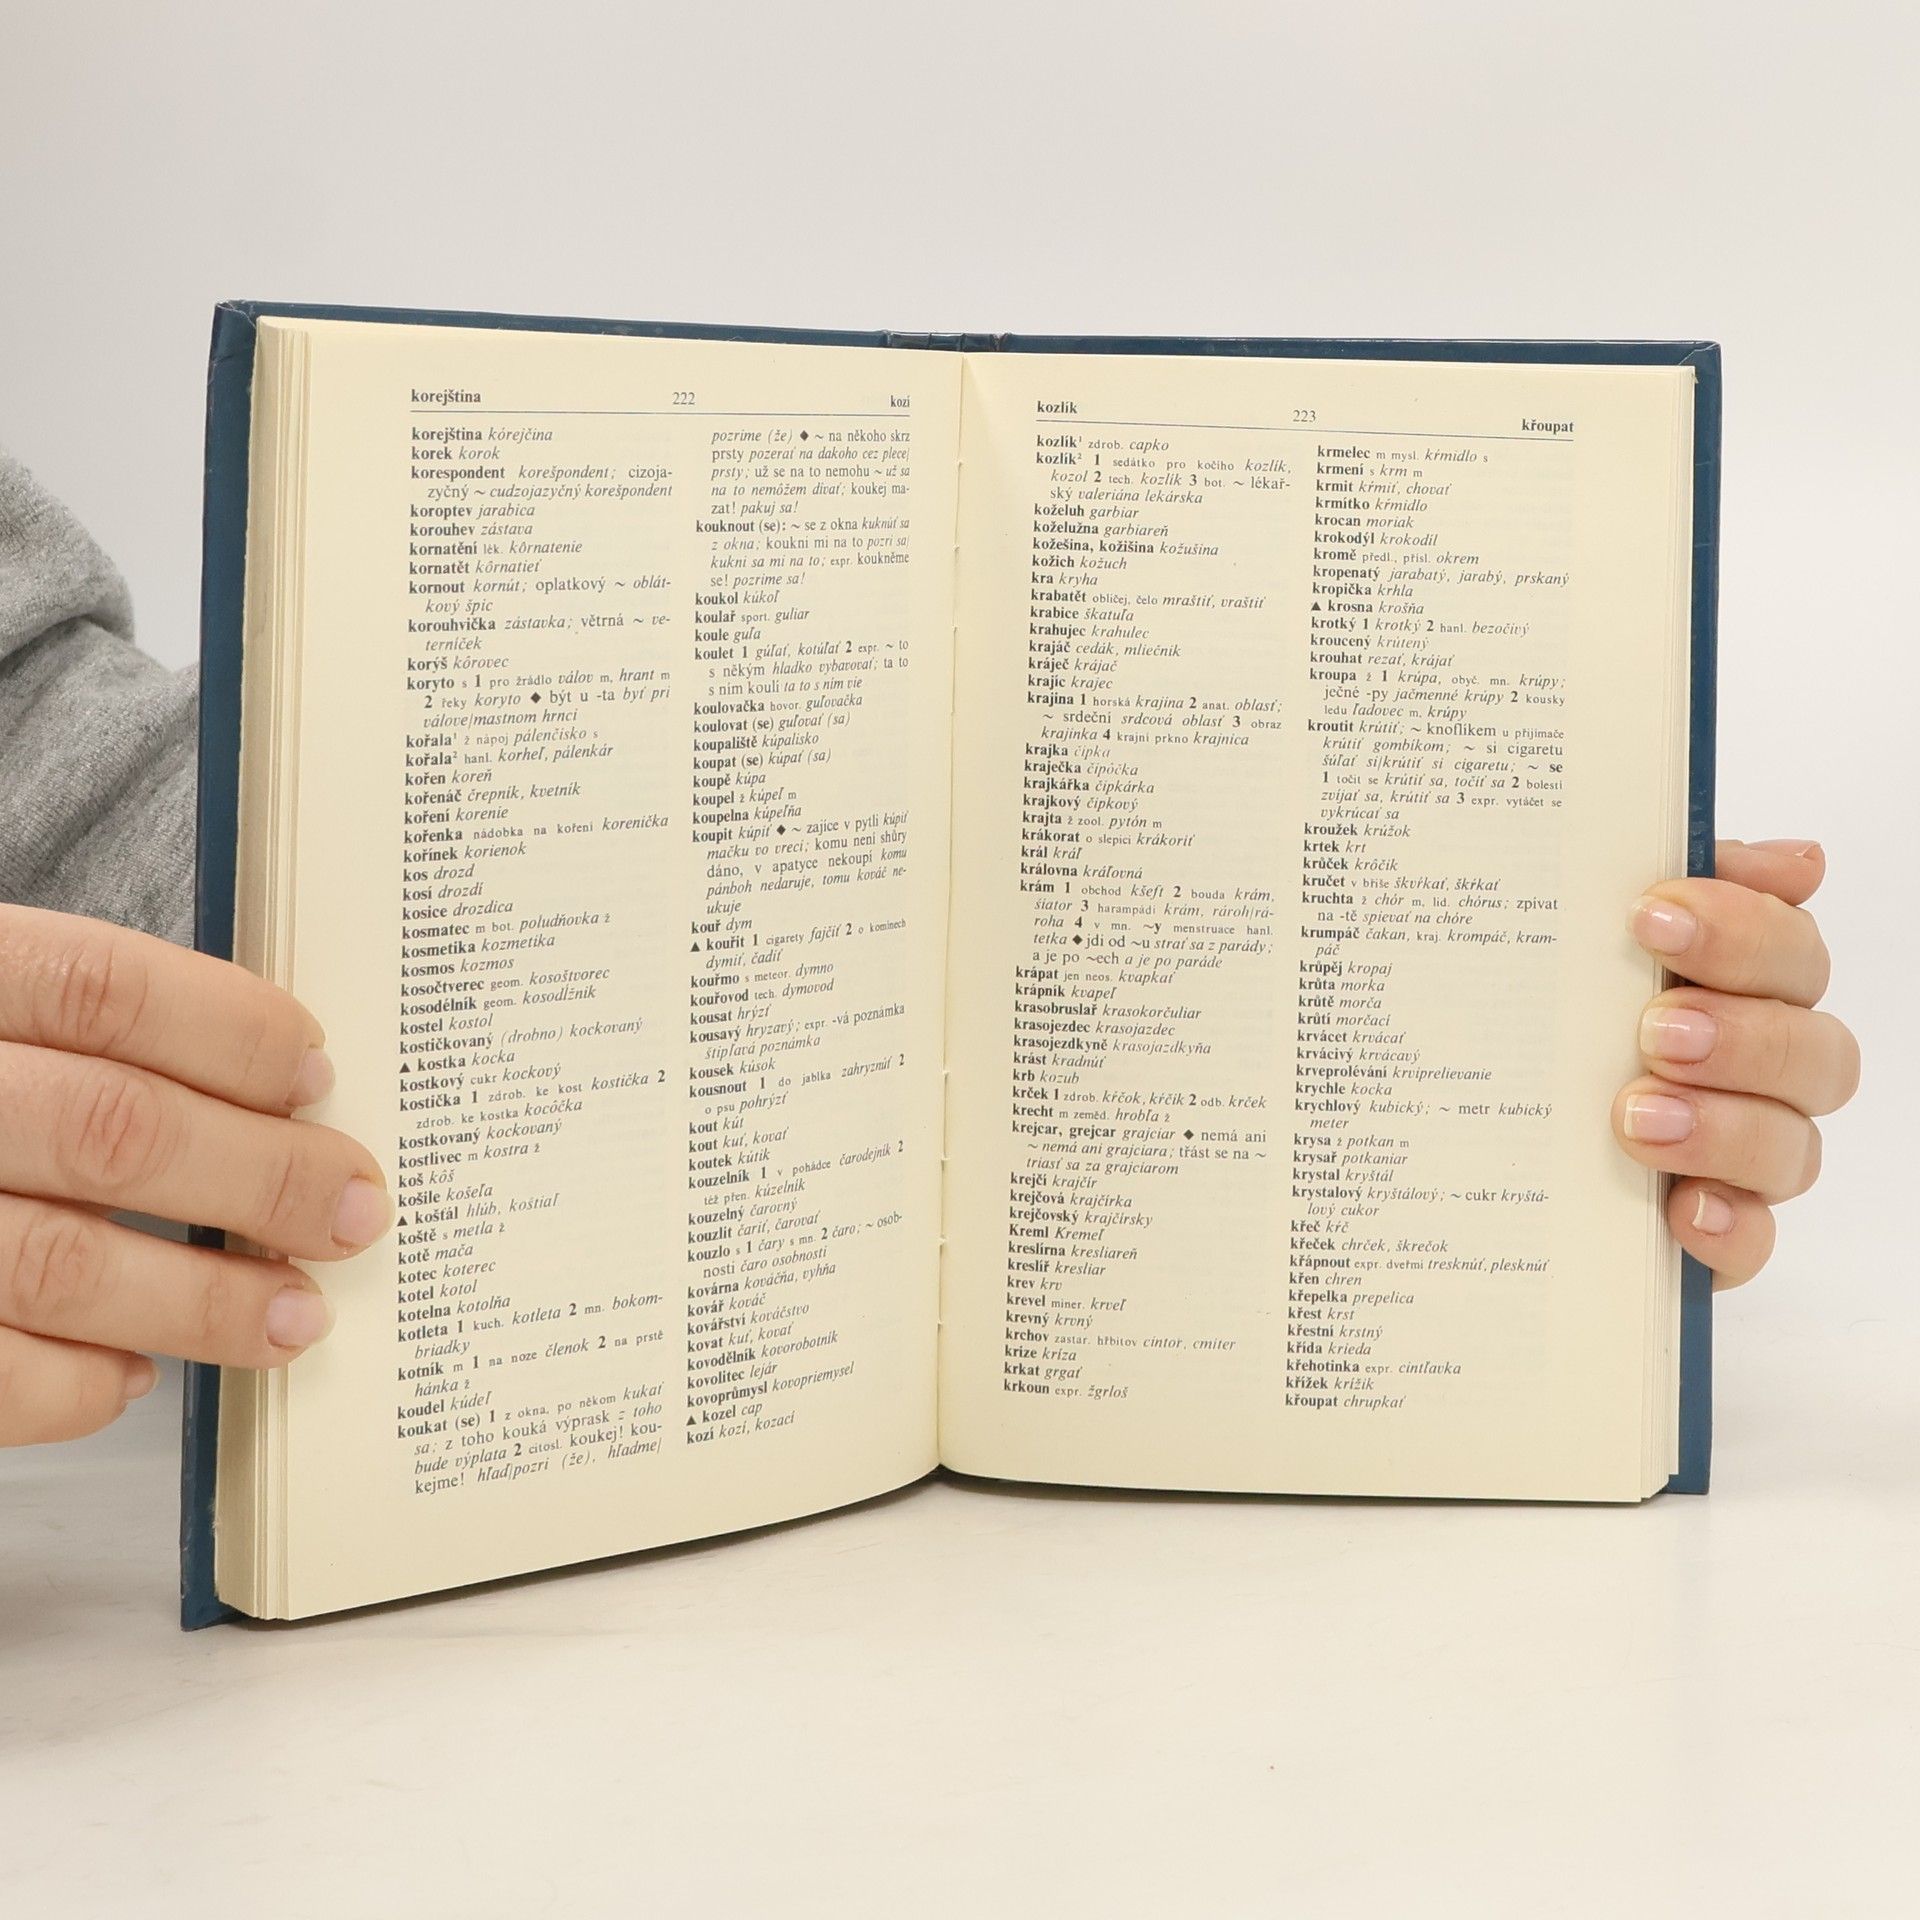 korejština 222 kozí
korejština kórejčina
korek korok
korespondent korešpondent; cizoja-
zyčný ~ cudzojazyčný korešpondent
koroptev jarabica
korouhev zástava
kornatění lék. kôrnatenie
kornatět kôrnatieť
kornout kornút; oplatkový ~ oblát-
kový špic
korouhvička zástavka; větrná ~ ve-
terníček
korýš kôrovec
koryto s 1 pro žrádlo válov m, hrant m
2 řeky koryto ◆ být u -ta byť pri
válove/mastnom hrnci
kořala¹ ž nápoj pálenčisko s
kořala² hanl. korheľ, pálenkár
kořen koreň
kořenáč črepník, kvetník
koření korenie
kořenka nádobka na koření korenička
kořínek korienok
kos drozd
kosí drozdí
kosice drozdica
kosmatec m bot. poludňovka ž
kosmetika kozmetika
kosmos kozmos
kosočtverec geom. kosoštvorec
kosodélník geom. kosodĺžnik
kostel kostol
kostičkovaný (drobno) kockovaný
▲ kostka kocka
kostkový cukr kockový
kostička 1 zdrob. ke kost kostička 2
zdrob. ke kostka kocôčka
kostkovaný kockovaný
kostlivec m kostra ž
koš kôš
košile košeľa
▲ košťál hlúb, koštiaľ
koště s metla ž
kotě mača
kotec koterec
kotel kotol
kotelna kotolňa
kotleta 1 kuch. kotleta 2 mn. bokom-
briadky
kotník m 1 na noze členok 2 na prstě
hánka ž
koudel kúdeľ
koukat (se) 1 z okna, po někom kukať
sa; z toho kouká výprask z toho
bude výplata 2 citosl. koukej! kou-
kejme! hľaď/pozri (že), hľadme/
pozrime (že) ◆ ~ na někoho skrz
prsty pozerať na dakoho cez plece/
prsty; už se na to nemohu ~ už sa
na to nemôžem dívať; koukej ma-
zat! pakuj sa!
kouknout (se): ~ se z okna kuknúť sa
z okna; koukni mi na to pozri sa/
kukni sa mi na to; expr. koukněme
se! pozrime sa!
koukol kúkoľ
koulař sport. guliar
koule guľa
koulet 1 gúľať, kotúľať 2 expr. ~ to
s někým hladko vybavovať; ta to
s ním koulí ta to s ním vie
koulovačka hovor. guľovačka
koulovat (se) guľovať (sa)
koupaliště kúpalisko
koupat (se) kúpať (sa)
koupě kúpa
koupel ž kúpeľ m
koupelna kúpeľňa
koupit kúpiť ◆ ~ zajíce v pytli kúpiť
mačku vo vreci; komu není shůry
dáno, v apatyce nekoupí komu
pánboh nedaruje, tomu kováč ne-
ukuje
kouř dym
▲ kouřit 1 cigarety fajčiť 2 o komínech
dymiť, čadiť
kouřmo s meteor. dymno
kouřovod tech. dymovod
kousat hrýzť
kousavý hryzavý; expr. -vá poznámka
štipľavá poznámka
kousek kúsok
kousnout 1 do jablka zahryznúť 2
o psu pohrýzť
kout kút
kout kuť, kovať
koutek kútik
kouzelník 1 v pohádce čarodejník 2
též přen. kúzelník
kouzelný čarovný
kouzlit čariť, čarovať
kouzlo s 1 čary s mn. 2 čaro; ~ osob-
nosti čaro osobnosti
kovárna kováčňa, vyhňa
kovář kováč
kovářství kováčstvo
kovat kuť, kovať
kovodělník kovorobotník
kovolitec lejár
kovoprůmysl kovopriemysel
▲ kozel cap
kozí kozí, kozací
kozlík 223 křoupat
kozlík¹ zdrob. capko
kozlík² 1 sedátko pro kočího kozlík,
kozol 2 tech. kozlík 3 bot. ~ lékař-
ský valeriána lekárska
koželuh garbiar
koželužna garbiareň
kožešina, kožišina kožušina
kožich kožuch
kra kryha
krabatět obličej, čelo mraštiť, vraštiť
krabice škatuľa
krahujec krahulec
krajáč cedák, mliečnik
kráječ krájač
krajíc krajec
krajina 1 horská krajina 2 anat. oblasť;
~ srdeční srdcová oblasť 3 obraz
krajinka 4 krajní prkno krajnica
krajka čipka
kraječka čipôčka
krajkářka čipkárka
krajkový čipkový
krajta ž zool. pytón m
krákorat o slepici krákoriť
král kráľ
královna kráľovná
krám 1 obchod kšeft 2 bouda krám,
šiator 3 harampádí krám, rároh/rá-
roha 4 v mn. ~y menstruace hanl.
tetka ◆ jdi od ~u strať sa z parády;
a je po ~ech a je po paráde
krápat jen neos. kvapkať
krápník kvapeľ
krasobruslař krasokorčuliar
krasojezdec krasojazdec
krasojezdkyně krasojazdkyňa
krást kradnúť
krb kozub
krček 1 zdrob. kŕčok, kŕčik 2 odb. kŕček
krecht m zeměd. hrobľa ž
krejcar, grejcar grajciar ◆ nemá ani
~ nemá ani grajciara; třást se na ~
triasť sa za grajciarom
krejčí krajčír
krejčová krajčírka
krejčovský krajčírsky
Kreml Kremeľ
kreslírna kresliareň
kreslíř kresliar
krev krv
krevel miner. krveľ
krevný krvný
krchov zastar. hřbitov cintor, cmiter
krize kríza
krkat grgať
krkoun expr. žgrloš
krmelec m mysl. kŕmidlo s
krmení s krm m
krmit kŕmiť, chovať
krmítko kŕmidlo
krocan moriak
krokodýl krokodíl
kromě předl., přísl. okrem
kropenatý jarabatý, jarabý, prskaný
kropička krhla
▲ krosna krošňa
krotký 1 krotký 2 hanl. bezočivý
kroucený krútený
krouhat rezať, krájať
kroupa ž 1 krúpa, obyč. mn. krúpy;
ječné -py jačmenné krúpy 2 kousky
ledu ľadovec m, krúpy
kroutit krútiť; ~ knoflíkem u přijímače
krútiť gombíkom; ~ si cigaretu
šúľať si/krútiť si cigaretu; ~ se
1 točit se krútiť sa, točiť sa 2 bolestí
zvíjať sa, krútiť sa 3 expr. vytáčet se
vykrúcať sa
kroužek krúžok
krtek krt
krůček krôčik
kručet v břiše škvŕkať, škŕkať
kruchta ž chór m, lid. chórus; zpívat
na -tě spievať na chóre
krumpáč čakan, kraj. krompáč, kram-
páč
krůpěj kropaj
krůta morka
krůtě morča
krůtí morčací
krvácet krvácať
krvácivý krvácavý
krveprolévání krviprelievanie
krychle kocka
krychlový kubický; ~ metr kubický
meter
krysa ž potkan m
krysař potkaniar
krystal kryštál
krystalový kryštálový; ~ cukr kryštá-
lový cukor
křeč kŕč
křeček chrček, škrečok
křápnout expr. dveřmi tresknúť, plesknúť
křen chren
křepelka prepelica
křest krst
křestní krstný
křída krieda
křehotinka expr. cintľavka
křížek krížik
křoupat chrupkať